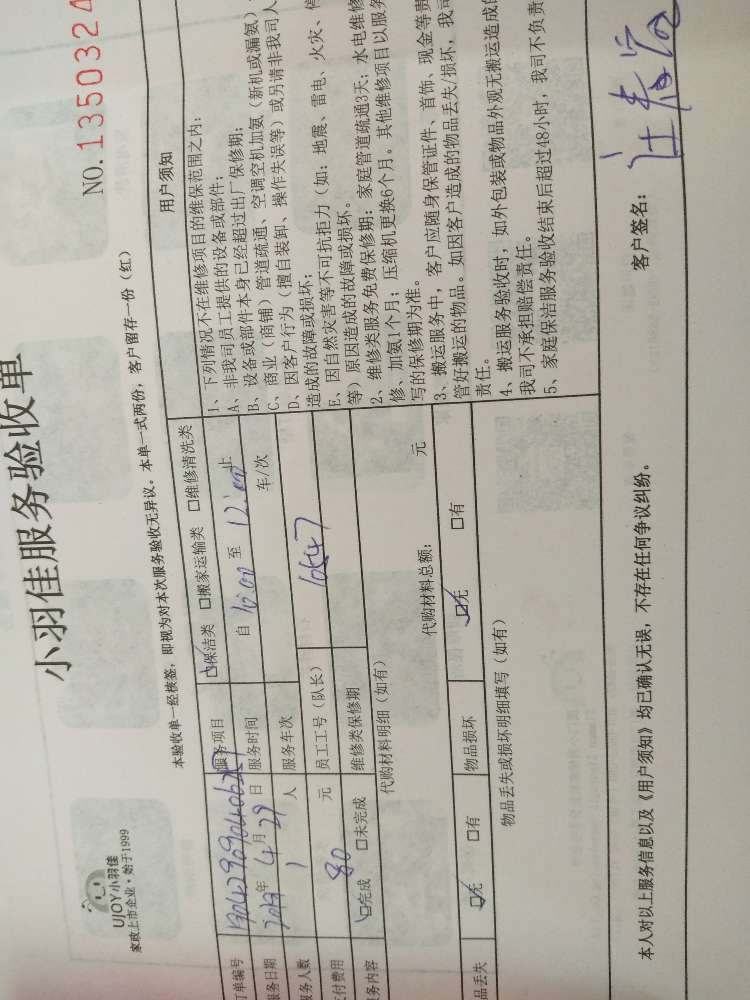 UJOY小羽佳
家政上市企业·始于1999
小羽佳服务验收单
NO.1350324
本验收单一经核签，即视为对本次服务验收无异议。本单一式两份，客户留存一份（红）
订单编号
服务项目 ☑保洁类 □搬家运输类 □维修清洗类
服务日期 年 4 月 29 日 服务时间 自 10:00 至 12:00 止
服务人数 1 人 服务车次 车/次
支付费用 80 元 员工工号（队长） 10547
服务内容 ☑完成 □未完成 维修类保修期
代购材料明细（如有）
代购材料总额： 元
物品丢失 ☑无 □有 物品损坏 ☑无 □有
物品丢失或损坏明细填写（如有）
用户须知
1、下列情况不在维修项目的维保范围之内：
A、非我司员工提供的设备或部件；
B、设备或部件本身已经超过出厂保修期；
C、商业（商铺）管道疏通、空调空机加氨（新机或漏氨）
D、因客户行为（擅自装卸、操作失误等）或另请非我司人
造成的故障或损坏；
E、因自然灾害等不可抗拒力（如：地震、雷电、火灾、
等）原因造成的故障或损坏。
2、维修类服务免费保修期：家庭管道疏通3天；水电维修
修、加氨1个月；压缩机更换6个月。其他维修项目以服务
写的保修期为准。
3、搬运服务中，客户应随身保管证件、首饰、现金等贵
管好搬运的物品。如因客户造成的物品丢失/损坏，我司
责任。
4、搬运服务验收时，如外包装或物品外观无搬运造成的
我司不承担赔偿责任。
5、家庭保洁服务验收结束后超过48小时，我司不负责
本人对以上服务信息以及《用户须知》均已确认无误，不存在任何争议纠纷。
客户签名：